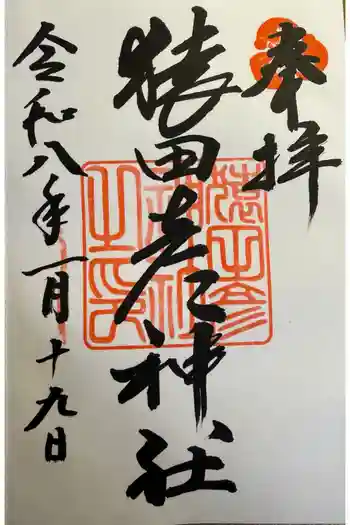 奉拝
猿田彦神社
令和八年一月十九日